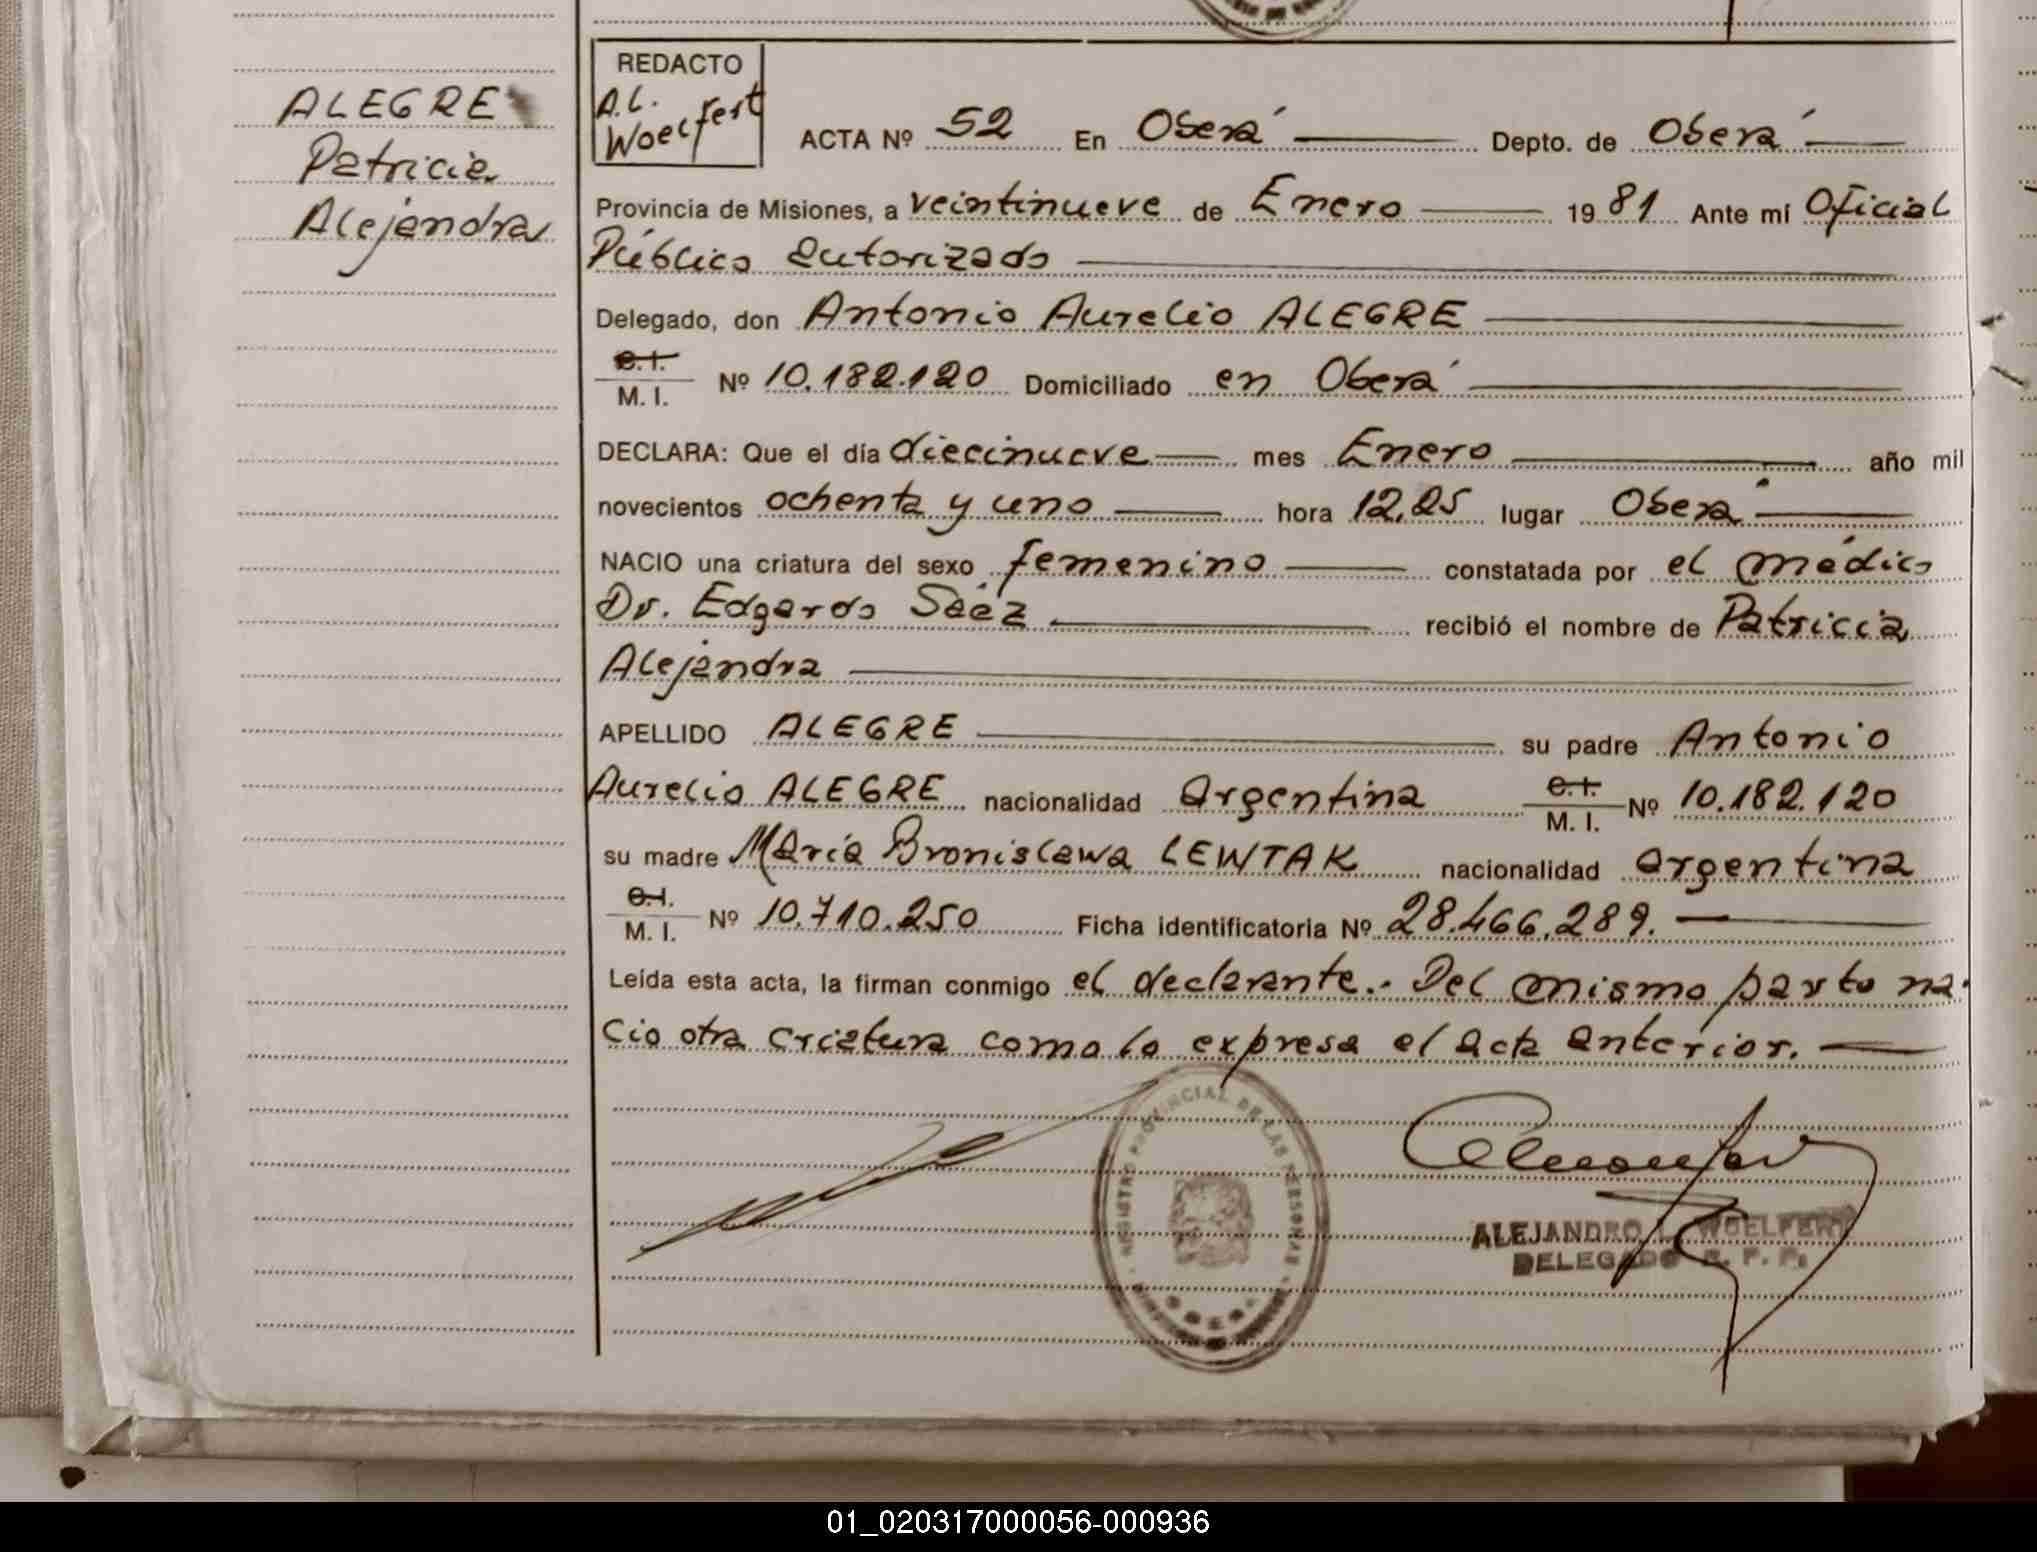 ALEGRE
Patricia
Alejandra
REDACTO
A.L.
Woelfert
ACTA Nº 52 En Oberá Depto. de Oberá
Provincia de Misiones, a veintinueve de Enero 1981 Ante mí Oficial
Público autorizado
Delegado, don Antonio Aurelio ALEGRE
C.I.
M. I. Nº 10.182.120 Domiciliado en Oberá
DECLARA: Que el día diecinueve mes Enero año mil
novecientos ochenta y uno hora 12,25 lugar Oberá
NACIO una criatura del sexo femenino constatada por el médico
Dr. Edgardo Sáez recibió el nombre de Patricia
Alejandra
APELLIDO ALEGRE su padre Antonio
Aurelio ALEGRE nacionalidad argentina C.I. M. I. Nº 10.182.120
su madre María Bronislawa LEWTAK nacionalidad argentina
C.I.
M. I. Nº 10.710.250 Ficha identificatoria Nº 28.466.289.
Leída esta acta, la firman conmigo el declarante.- Del mismo parto na-
cio otra criatura como lo expresa el acta anterior.
REGISTRO PROVINCIAL DE LAS PERSONAS
ALEJANDRO L. WOELFERT
DELEGADO R. P. P.
01_020317000056-000936